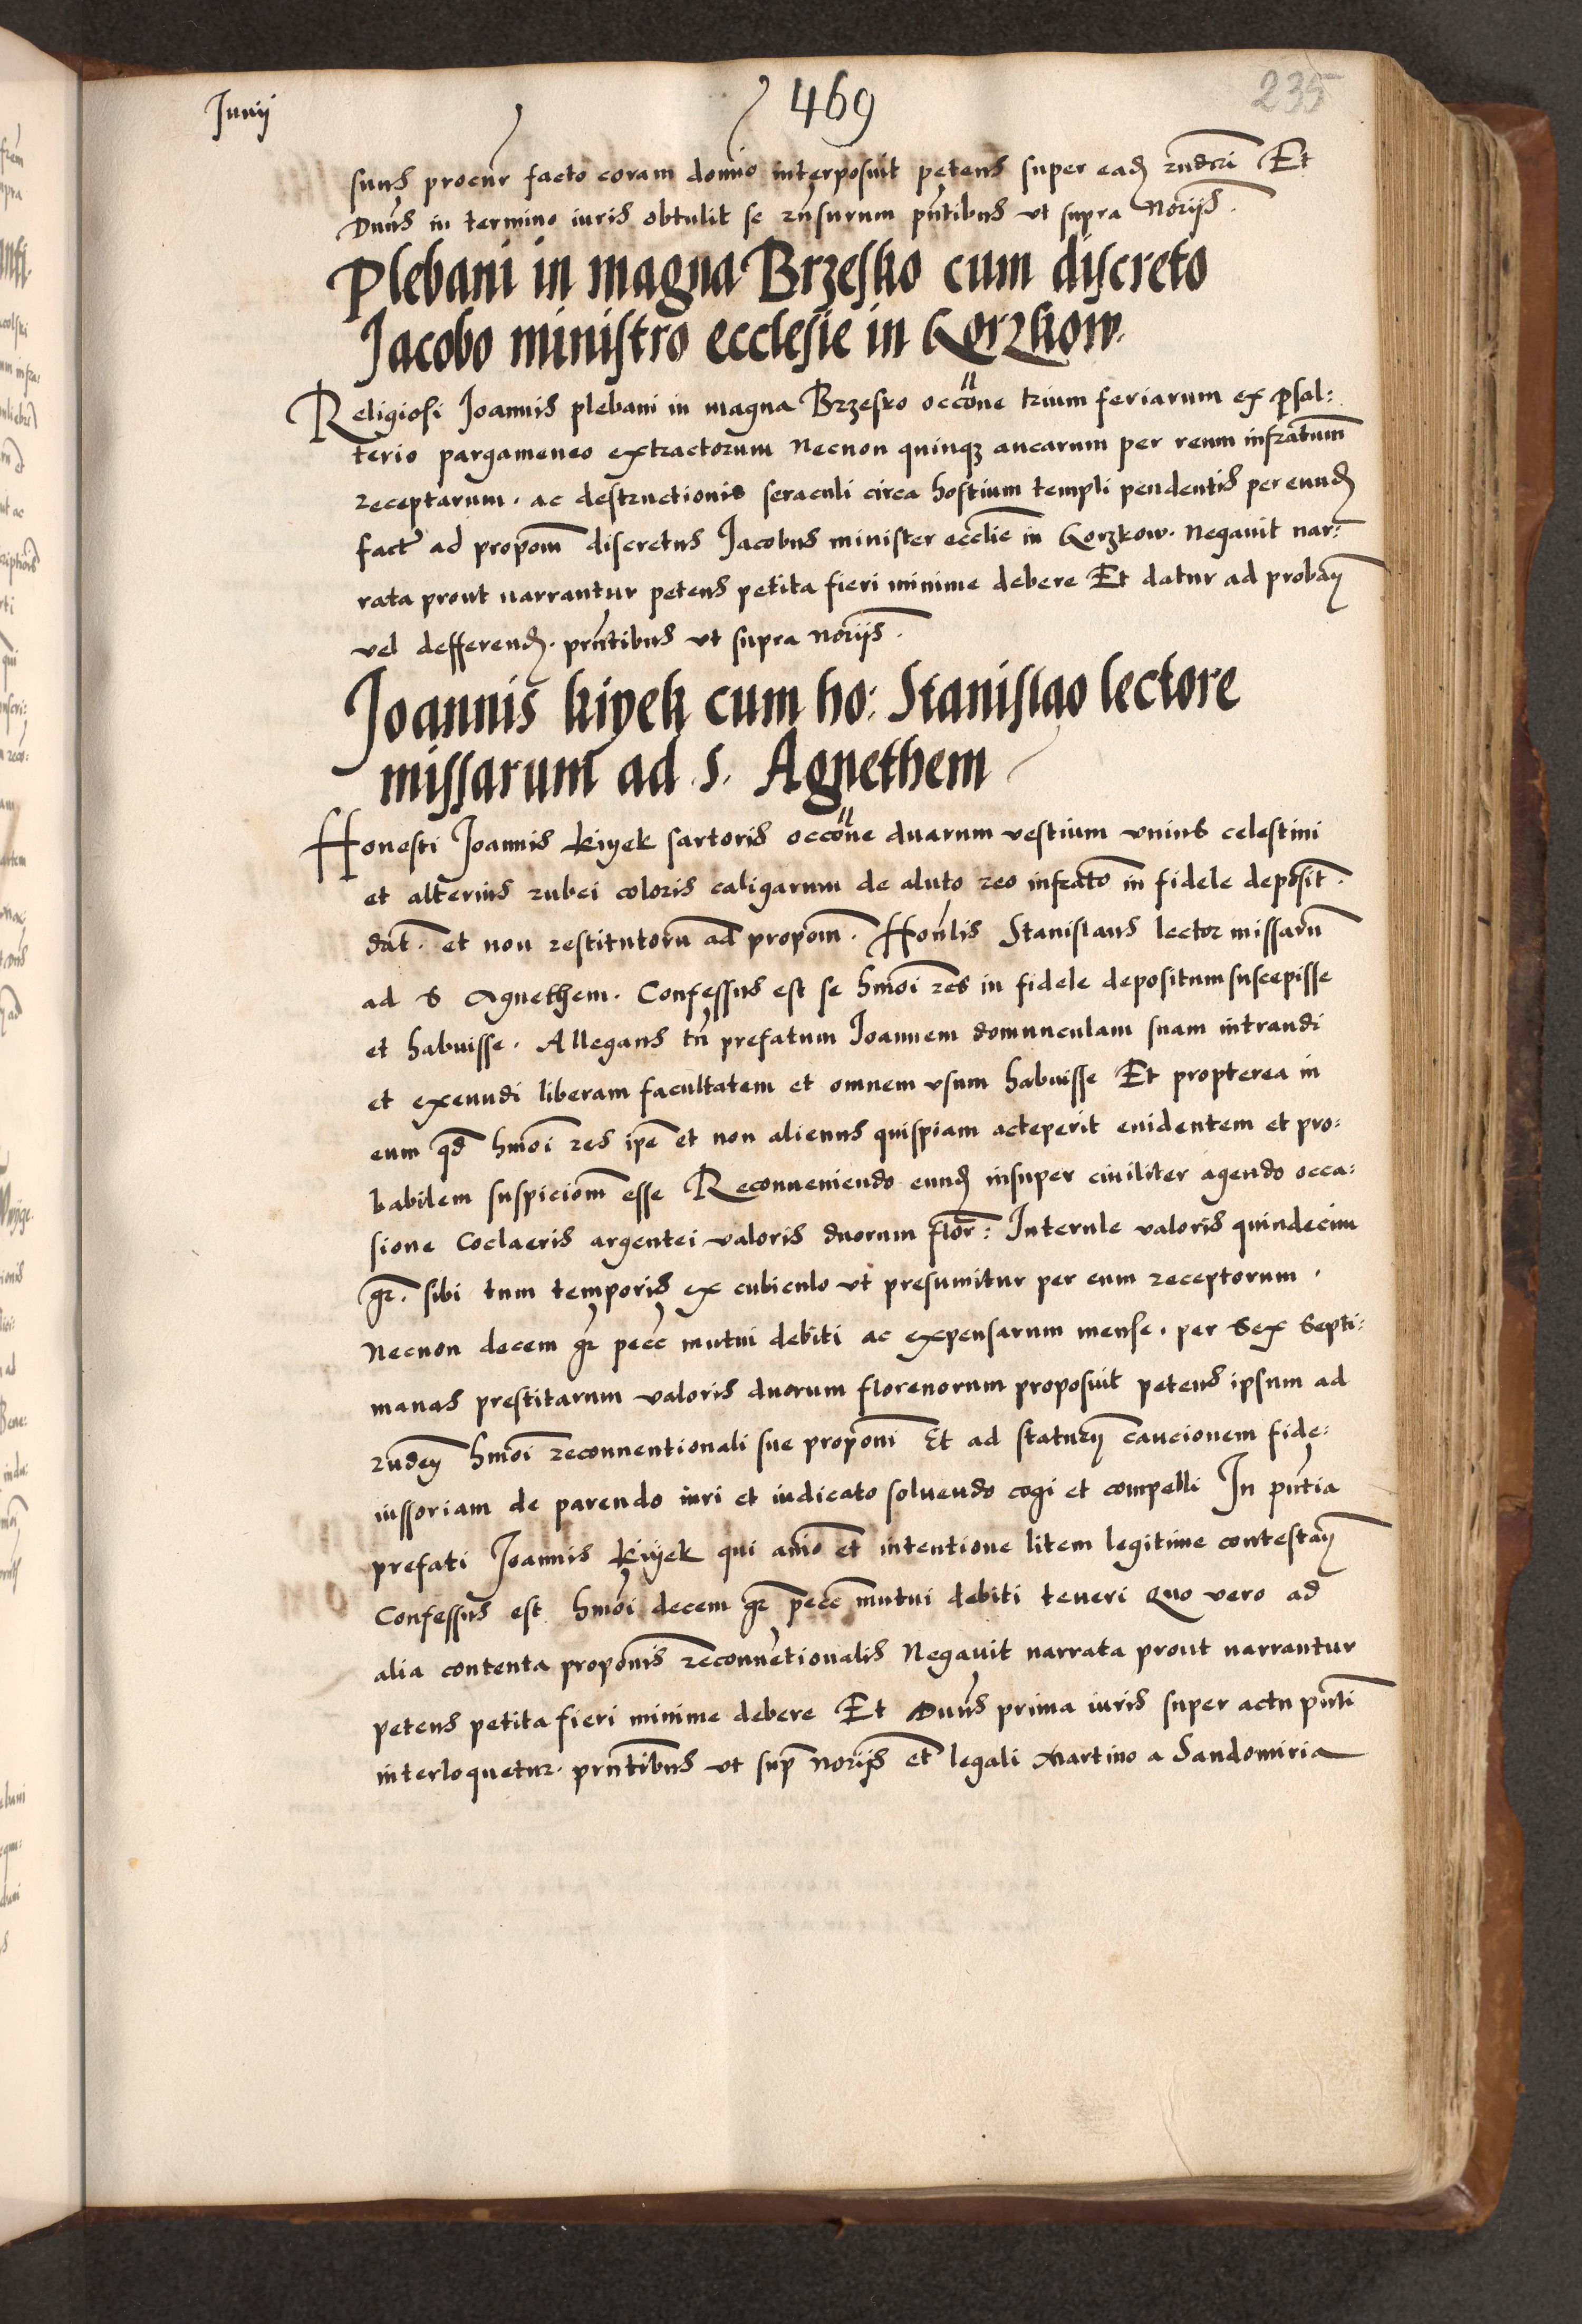 Junij
469
235
suus procur facto coram domino interposuit petens super ead rnderi Et
Duus in termino iuris obtulit se rnsurum pntibus vt supra Norijs.
Plebani in magna Brzesko cum discreto
Jacobo ministro ecclesie in Korzkow.
Religiosi Joannis plebani in magna Brzesko occone trium feriarum ex psal:
terio pargameneo extractorum Necnon quinqz aucarum per reum infratum
receptarum. ac destructionis seraculi circa hostium templi pendentis per eund
fact ad propom discretus Jacobus minister ecclie in Korzkow. Negauit nar:
rata prout narrantur petens petita fieri minime debere Et datur ad proband
vel defferend. prntibus vt supra norijs.
Joannis kiyek cum ho: Stanislao lectore
missarum ad s. Agnethem
Honesti Joannis kiyek sartoris occone duarum vestium vnius celestini
et alterius rubei coloris caligarum de aluto reo infrato in fidele deposit.
dat. et non restitutoru ad propom. Honlis Stanislaus lector missaru
ad S Agnethem. Confessus est se hmoi res in fidele depositum suscepisse
et habuisse. Allegans tn prefatum Joannem domunculam suam intrandi
et exeundi liberam facultatem et omnem vsum habuisse Et propterea in
eum qd hmoi res ipe et non alienus quispiam acceperit euidentem et pro:
babilem suspiciom esse Reconueniendo eund insuper ciuiliter agendo occa:
sione Coclaeris argentei valoris duorum flor: Interule valoris quindecim
gr. sibi tum temporis ex cubiculo vt presumitur per eum receptorum.
Necnon decem gr pecc mutui debiti ac expensarum mense. per sex septi:
manas prestitarum valoris duorum florenorum proposuit petens ipsum ad
rndem hmoi reconuentionali sue proponi Et ad statuen caucionem fide:
iussoriam de parendo iuri et iudicato soluendo cogi et compelli In pntia
prefati Joannis kiyek qui anio et intentione litem legitime contestan
Confessus est hmoi decem gr pecc mutui debiti teneri Quo vero ad
alia contenta proponis reconuetionalis Negauit narrata prout narrantur
petens petita fieri minime debere Et Duus prima iuris super actu pnti
interloquetur. prntibus vt sup norijs et legali Martino a Sandomiria